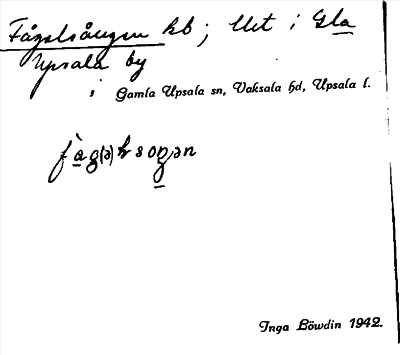 Fågelsången hb; Utt i Gla
Upsala by
i Gamla Upsala sn, Vaksala hd, Upsala l.
Inga Löwdin 1942.